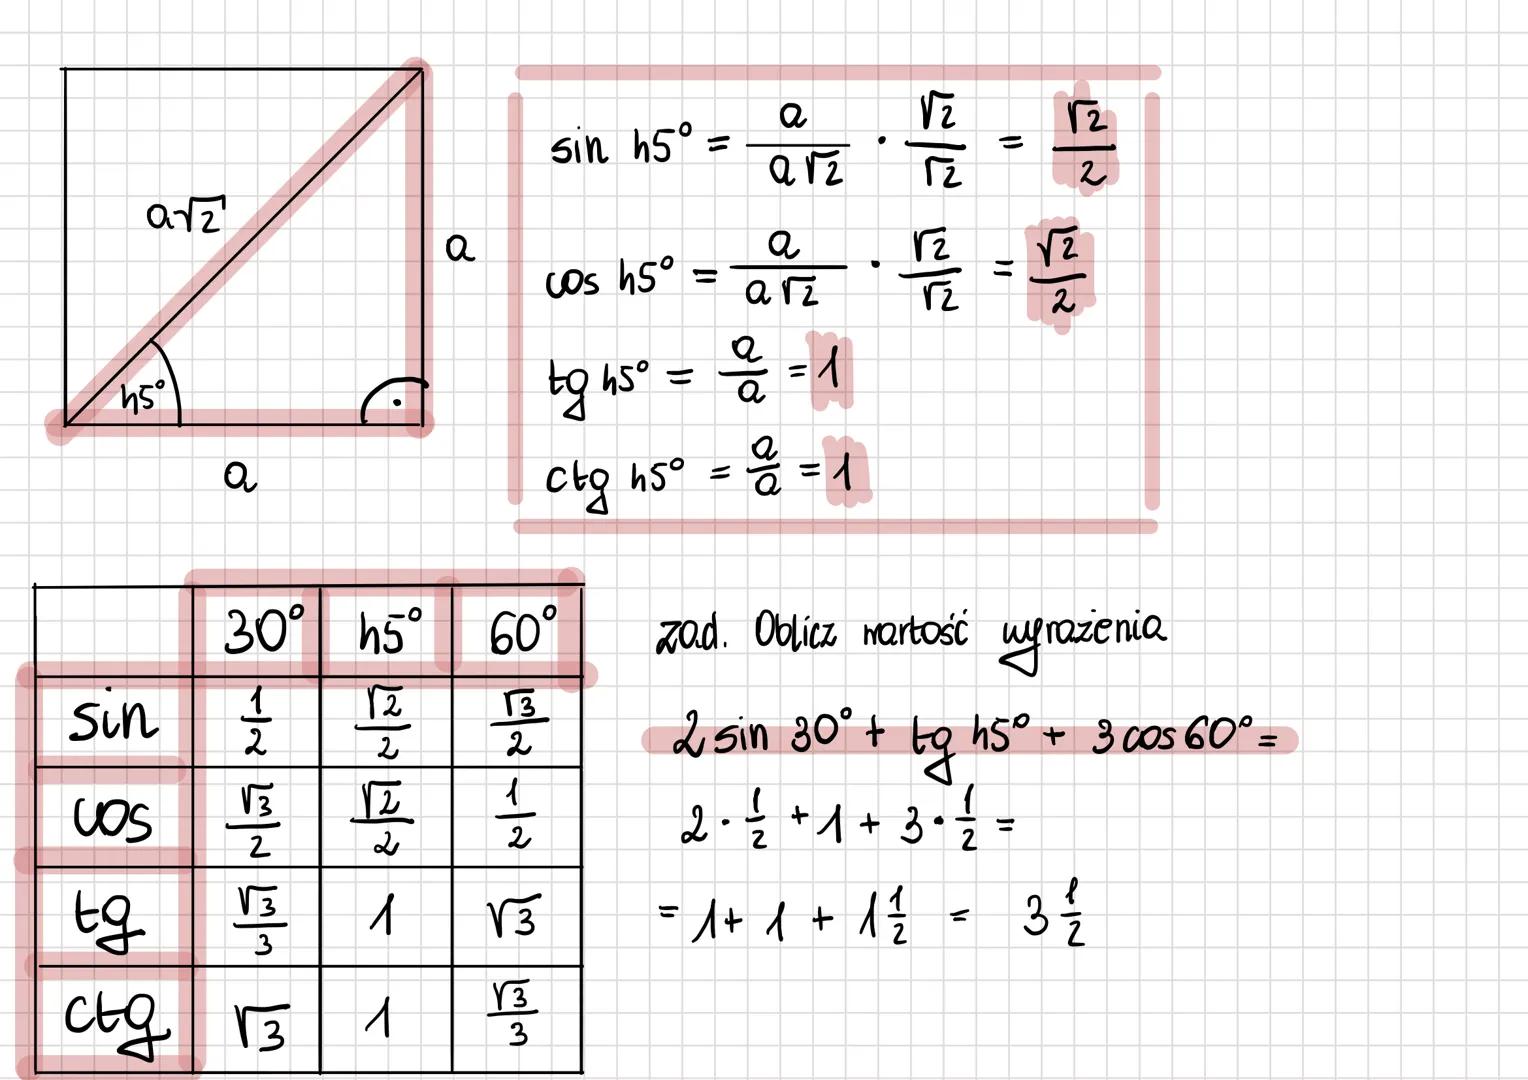 a√2
a
45°
a
sin 45° = a/a√2 · √2/√2 = √2/2
cos 45° = a/a√2 · √2/√2 = √2/2
tg 45° = a/a = 1
ctg 45° = a/a = 1
30° 45° 60°
sin 1/2 √2/2 √3/2
cos √3/2 √2/2 1/2
tg √3/3 1 √3
ctg √3 1 √3/3
zad. Oblicz wartość wyrażenia
2 sin 30° + tg 45° + 3 cos 60° =
2 · 1/2 + 1 + 3 · 1/2 =
= 1 + 1 + 1 1/2 = 3 1/2